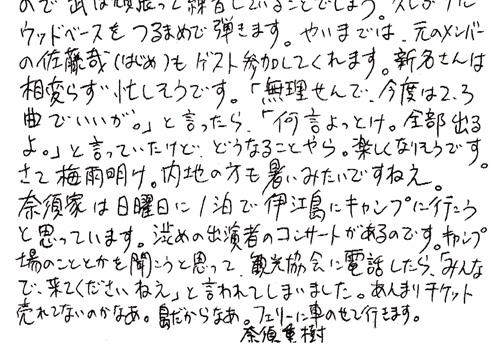 ので武は頑張って練習していることでしょう。久しぶりに
ウッドベースをつるまめで弾きます。やいまでは、元のメンバー
の佐藤哉(はじめ)もゲスト参加してくれます。新名さんは
相変らず忙しそうです。「無理せんで、今度は2、3
曲でいいが。」と言ったら、「何言よっとけ。全部出る
よ。」と言っていたけど、どうなることやら。楽しくなりそうです。
さて梅雨明け。内地の方も暑いみたいですねえ。
奈須家は日曜日に1泊で伊江島にキャンプに行こう
と思っています。渋めの出演者のコンサートがあるのです。キャンプ
場のこととかを聞こうと思って、観光協会に電話したら、「みんな
で、来てくださいねえ」と言われてしまいました。あんまりチケット
売れてないのかなあ。島だからなあ。フェリーに車のせて行きます。
奈須重樹